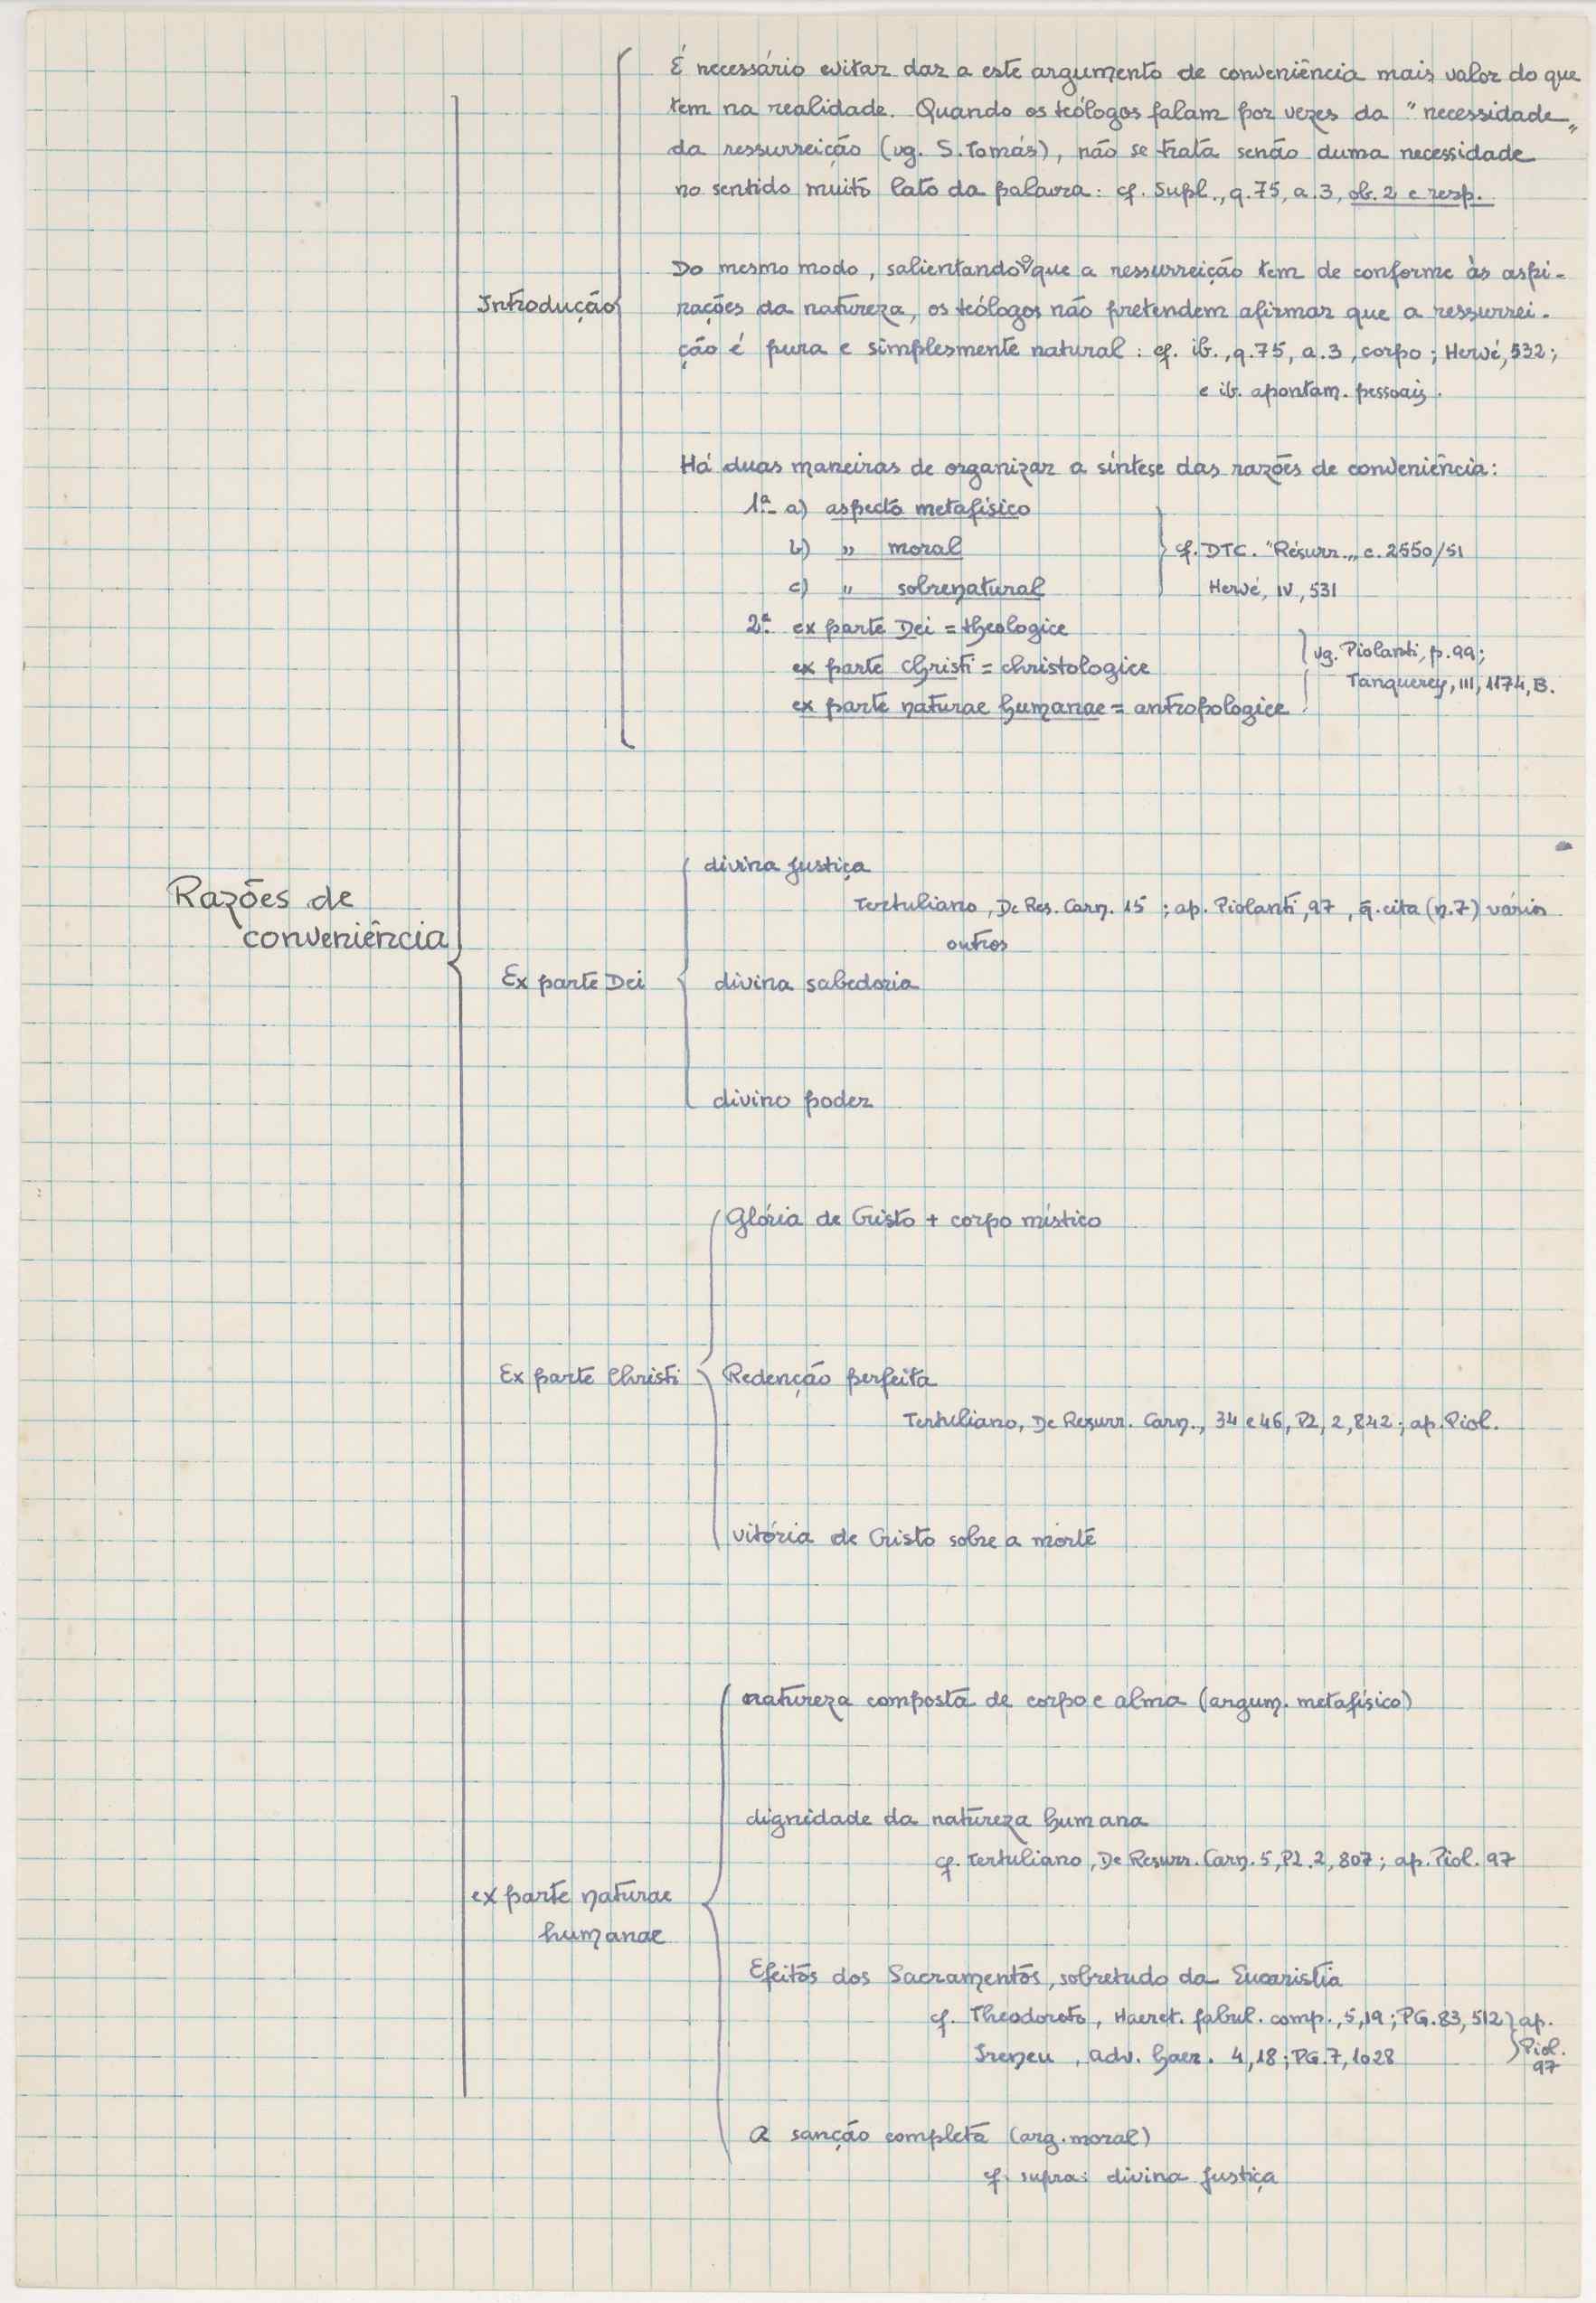 É necessário evitar dar a este argumento de conveniência mais valor do que
tem na realidade. Quando os teólogos falam por vezes da "necessidade"
da ressurreição (vg. S. Tomás), não se trata senão duma necessidade
no sentido muito lato da palavra: cf. Supl., q. 75, a. 3, ob. 2 e resp.
Do mesmo modo, salientando o que a ressurreição tem de conforme às aspi-
Introdução
rações da natureza, os teólogos não pretendem afirmar que a ressurrei-
ção é pura e simplesmente natural: cf. ib., q. 75, a. 3, corpo; Hervé, 532;
e ib. apontam. pessoais.
Há duas maneiras de organizar a síntese das razões de conveniência:
1ª a) aspecto metafísico
b) " moral
cf. DTC. "Résurr.", c. 2550/51
c) " sobrenatural
Hervé, IV, 531
2ª ex parte Dei = theologice
ex parte Christi = christologice
vg. Piolanti, p. 99;
Tanquerey, III, 1174, B.
ex parte naturae humanae = antropologice
Razões de
conveniência
Ex parte Dei
divina justiça
Tertuliano, De Res. Carn. 15; ap. Piolanti, 97, q. cita (n. 7) vários
outros
divina sabedoria
divino poder
Ex parte Christi
Glória de Cristo + corpo místico
Redenção perfeita
Tertuliano, De Resurr. Carn., 34 e 46, PL, 2, 842; ap. Piol.
vitória de Cristo sobre a morte
ex parte naturae
humanae
natureza composta de corpo e alma (argum. metafísico)
dignidade da natureza humana
cf. Tertuliano, De Resurr. Carn. 5, PL. 2, 807; ap. Piol. 97
Efeitos dos Sacramentos, sobretudo da Eucaristia
cf. Theodoreto, Haeret. fabul. comp., 5, 19; PG. 83, 512
Ireneu, adv. haer. 4, 18; PG. 7, 1028
ap.
Piol.
97
A sanção completa (arg. moral)
cf. supra: divina justiça